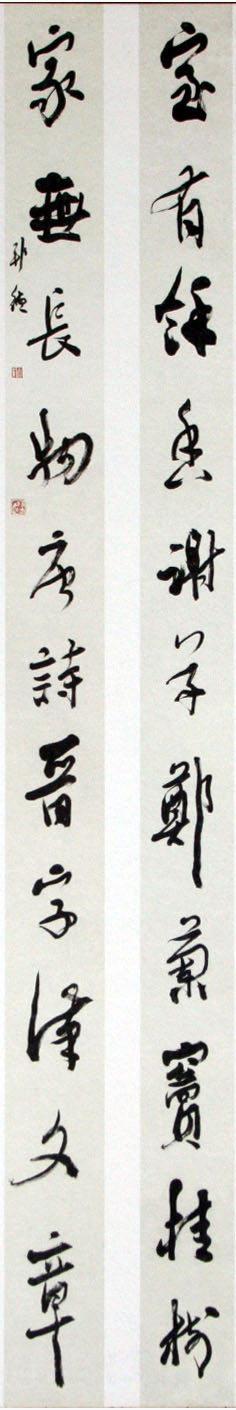 室有餘香謝草鄭蘭竇桂樹
家無長物唐詩晋字漢文章